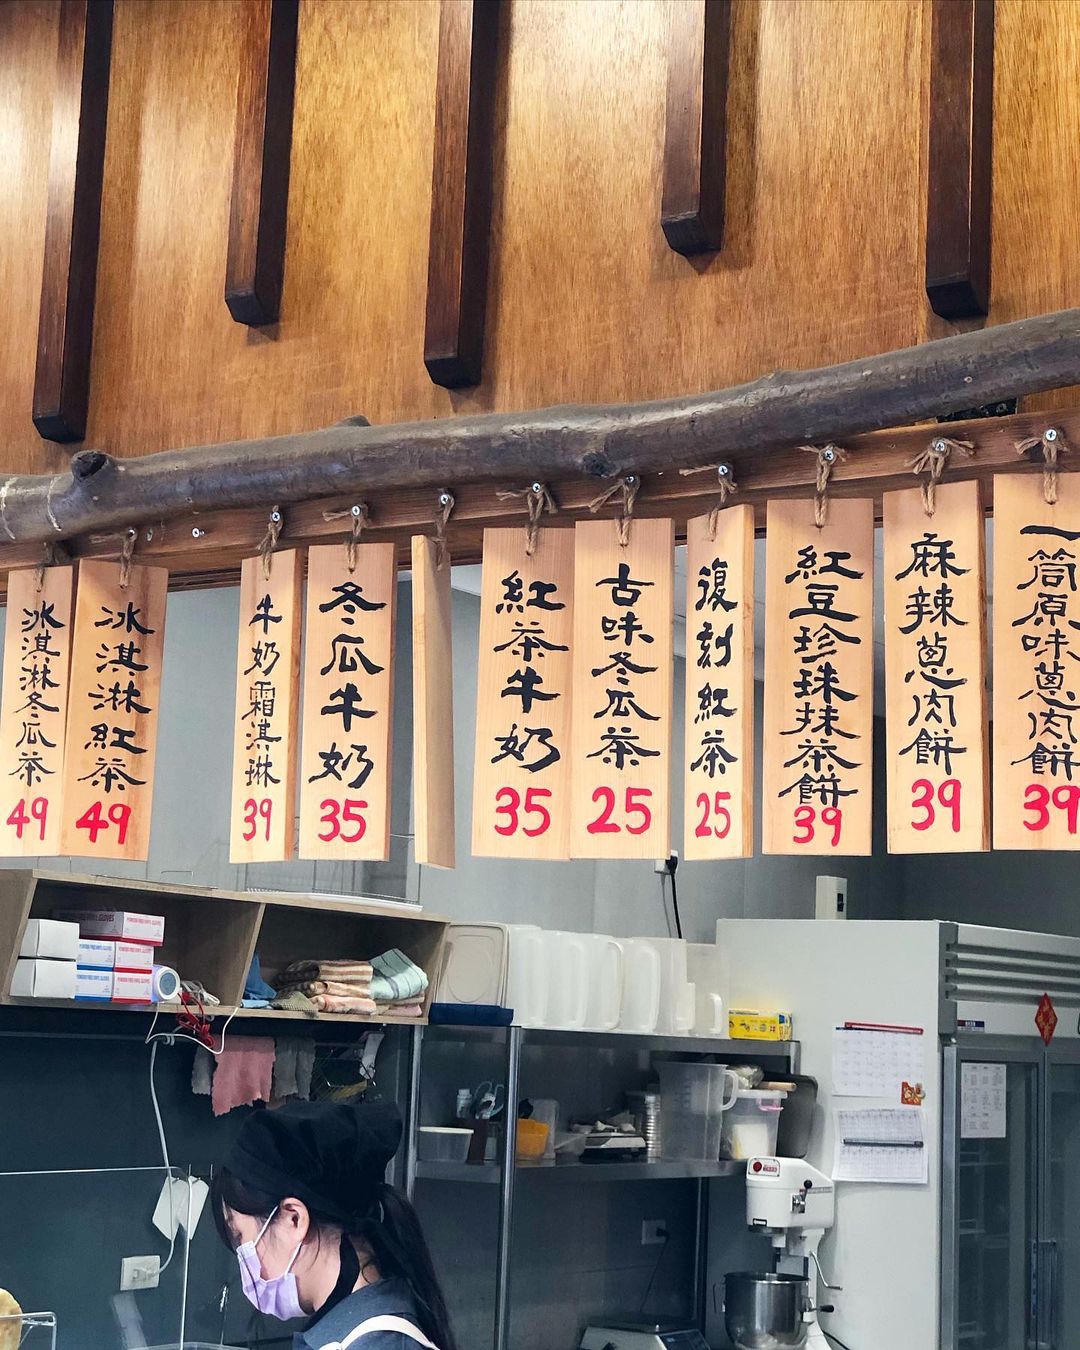 一筒原味蔥肉餅
39
麻辣蔥肉餅
39
紅豆珍珠抹茶餅
39
復刻紅茶
25
古味冬瓜茶
25
紅茶牛奶
35
冬瓜牛奶
35
牛奶霜淇琳
39
冰淇淋紅茶
49
冰淇淋冬瓜茶
49
POWDER FREE VINYL GLOVES